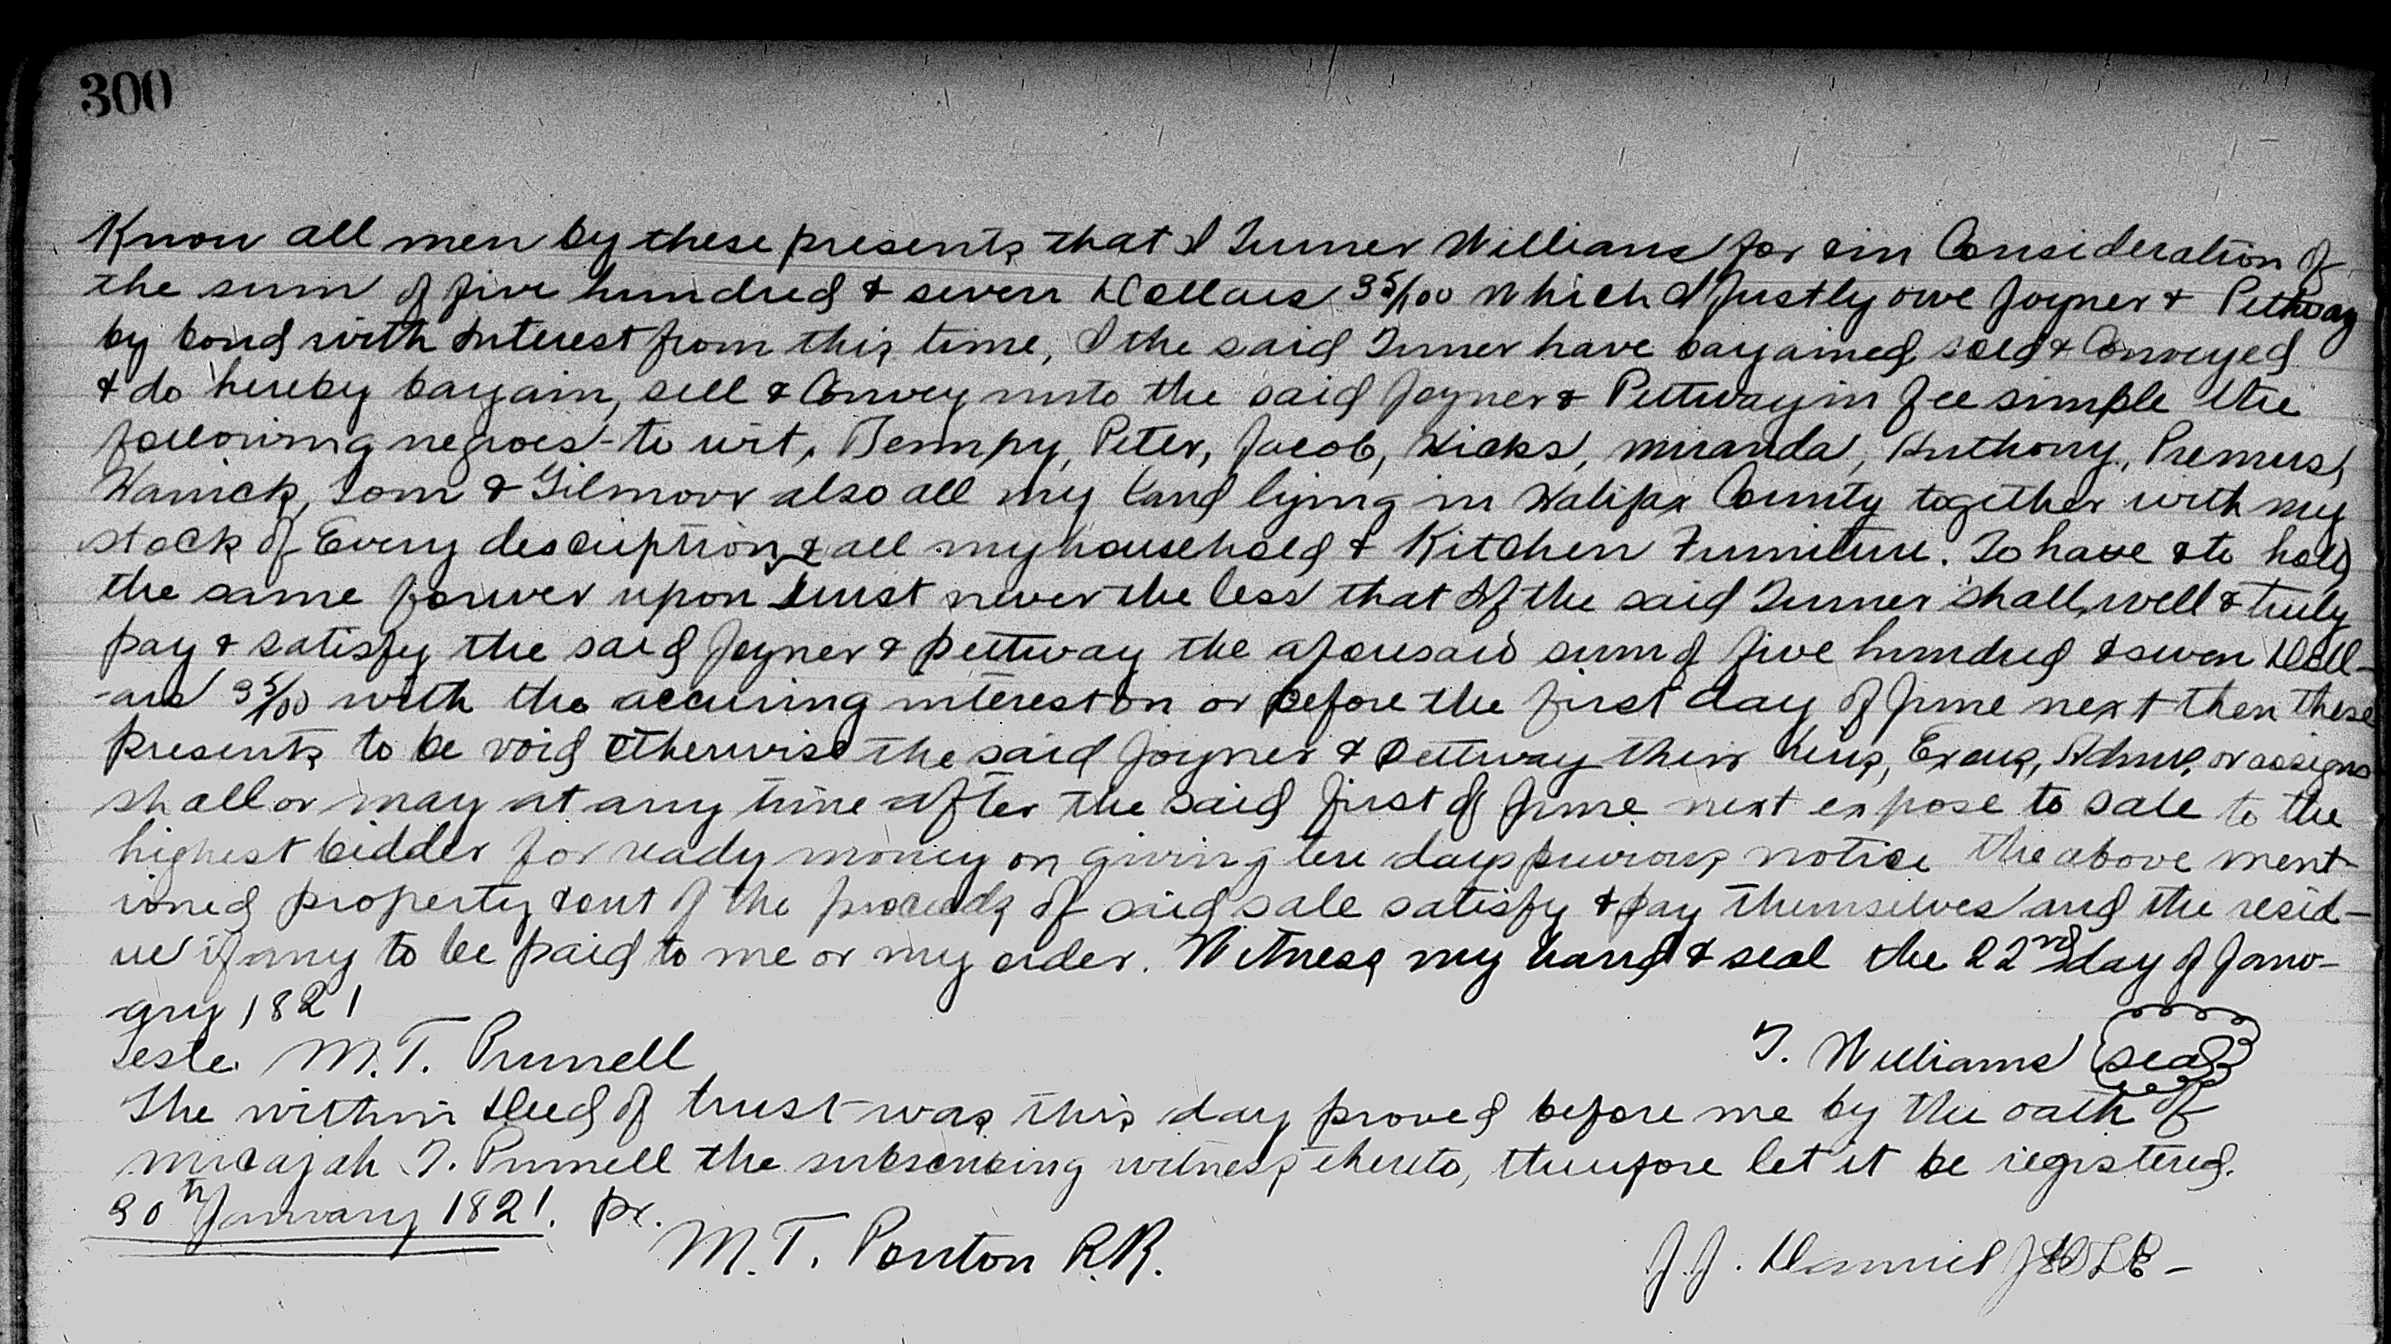 300
Know all men by these presents that I Turner Williams for & in Consideration of
the sum of five hundred & seven Dollars 35/100 which I justly owe Joyner & Pettway
by bond with Interest from this time, I the said Turner have bargained, sold & Conveyed
& do hereby bargain, sell & Convey unto the said Joyner & Pettway in fee simple the
following negroes - to wit, Bempy, Peter, Jacob, Hicks, Miranda, Anthony, Premus,
Warrick, Tom & Gilmour also all my land lying in Halifax County together with my
stock of Every description, & all my household & Kitchen Furniture. To have & to hold
the same forever upon trust never the less that if the said Turner shall, well & truly
pay & satisfy the said Joyner & Pettway the aforesaid sum of five hundred & seven Doll-
-ars 35/100 with the accruing interest on or before the first day of June next then these
presents to be void otherwise the said Joyner & Pettway their heirs, Exrs, Admrs. or assigns
shall or may at any time after the said first of June next expose to sale to the
highest bidder for ready money on giving ten days previous notice the above ment-
ioned property & out of the proceeds of said sale satisfy & pay themselves and the resid-
ue if any to be paid to me or my order. Witness my hand & seal the 22nd day of Janu-
ary 1821
Teste M. T. Purnell T. Williams seal
The within Deed of trust was this day proved before me by the oath of
Micajah T. Purnell the subscribing witness thereto, therefore let it be registered.
30th January 1821. pr.
M. T. Ponton R.R. J. J. Daniel